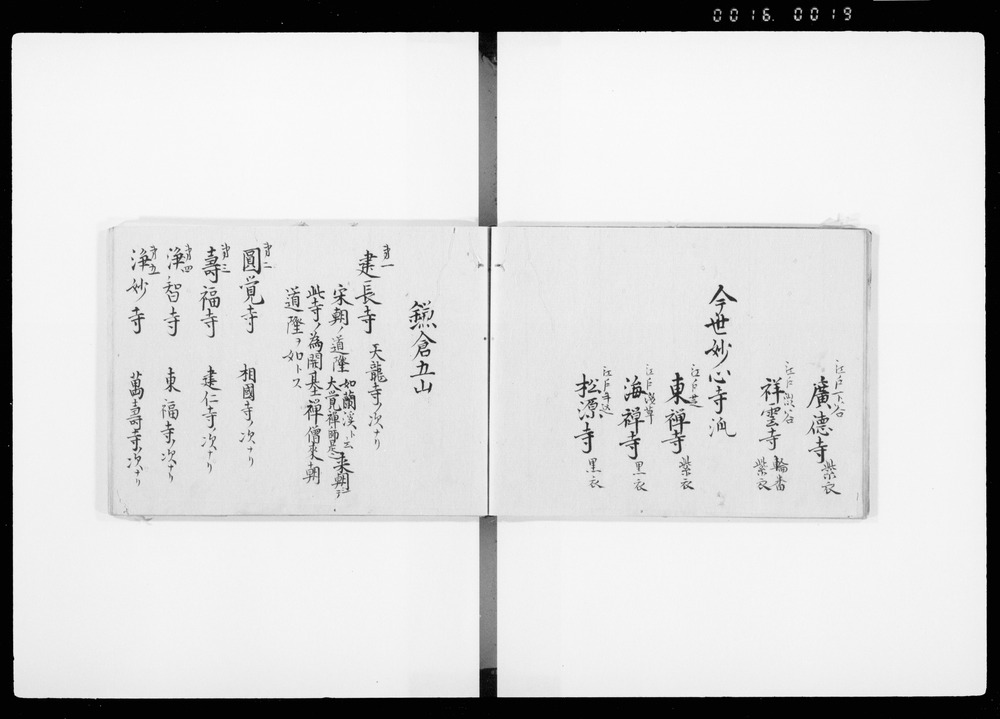 0016. 0019
江戸下谷
廣徳寺 紫衣
江戸澁谷
祥雲寺 輪番 紫衣
今世妙心寺派
江戸芝
東禅寺 紫衣
江戸浅草
海禅寺 黒衣
江戸牛込
松源寺 黒衣
鎌倉五山
第一
建長寺 天龍寺ノ次ナリ
宋朝ノ道隆 如蘭渓ト云 大覚禅師是 来朝シテ
此寺ノ為開基禅僧来朝
道隆ヲ如トス
第二
圓覚寺 相國寺ノ次ナリ
第三
壽福寺 建仁寺ノ次ナリ
第四
浄智寺 東福寺ノ次ナリ
第五
浄妙寺 萬壽寺ノ次ナリ